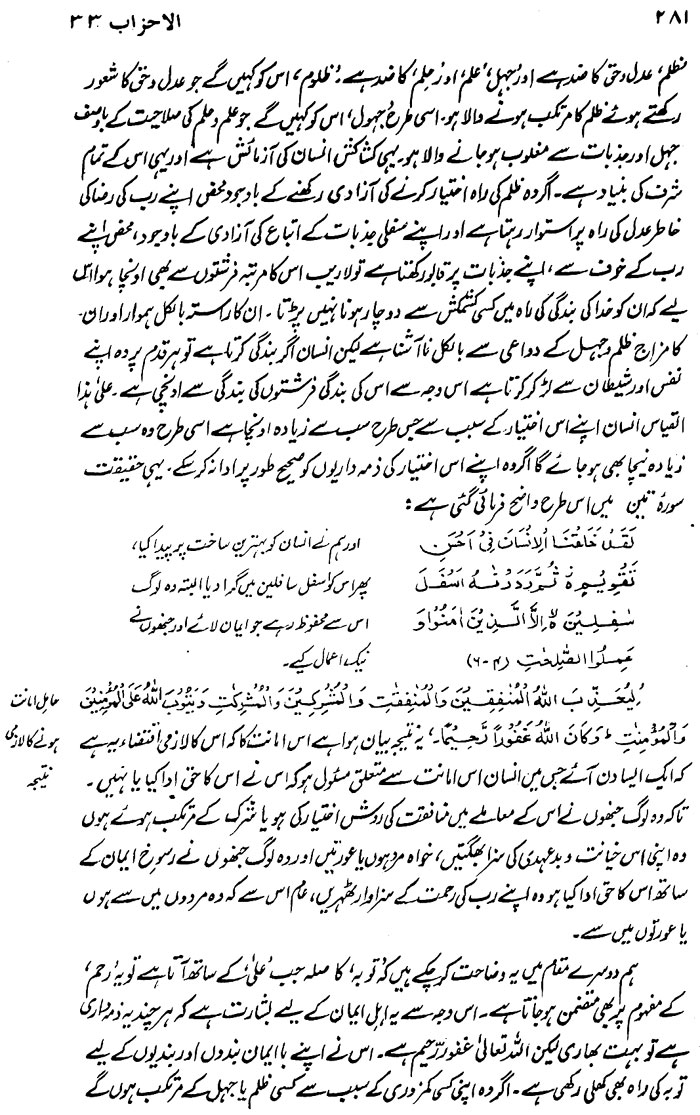 ۲۸۱
الاحزاب ۳۳
’ظلم‘ عدل و حق کا ضد ہے اور ’جہل‘ ’علم‘ اور ’حلم‘ کا ضد ہے۔ ’ظلوم‘ اس کو کہیں گے جو عدل و حق کا شعور
رکھتے ہوئے ظلم کا مرتکب ہونے والا ہو۔ اسی طرح ’جہول‘ اس کو کہیں گے جو علم و حلم کی صلاحیت کے باوصف
جہل اور جذبات سے مغلوب ہو جانے والا ہو۔ یہی کشاکش انسان کی آزمائش ہے اور یہی اس کے تمام
شرف کی بنیاد ہے۔ اگر وہ ظلم کی راہ اختیار کرنے کی آزادی رکھنے کے باوجود محض اپنے رب کی رضا کی
خاطر عدل کی راہ پر استوار رہتا ہے اور اپنے سفلی جذبات کے اتباع کی آزادی کے باوجود، محض اپنے
رب کے خوف سے، اپنے جذبات پر قابو رکھتا ہے تو لاریب اس کا مرتبہ فرشتوں سے بھی اونچا ہوا اس
لیے کہ ان کو خدا کی بندگی کی راہ میں کسی کشمکش سے دوچار ہونا نہیں پڑتا۔ ان کا راستہ بالکل ہموار اور ان
کا مزاج ظلم و جہل کے دواعی سے بالکل نا آشنا ہے لیکن انسان اگر بندگی کرتا ہے تو ہر قدم پر وہ اپنے
نفس اور شیطان سے لڑ کر کرتا ہے اس وجہ سے اس کی بندگی فرشتوں کی بندگی سے اونچی ہے۔ علیٰ ہذا
القیاس انسان اپنے اس اختیار کے سبب سے جس طرح سب سے زیادہ اونچا ہے اسی طرح وہ سب سے
زیادہ نیچا بھی ہو جائے گا اگر وہ اپنے اس اختیار کی ذمہ داریوں کو صحیح طور پر ادا نہ کر سکے۔ یہی حقیقت
سورۂ تین میں اس طرح واضح فرمائی گئی ہے:
لَقَدْ خَلَقْنَا الْاِنْسَانَ فِیْٓ اَحْسَنِ
تَقْوِیْمٍ ہ ثُمَّ رَدَدْنٰہُ اَسْفَلَ
سٰفِلِیْنَ ہ اِلَّا الَّذِیْنَ اٰمَنُوْا وَ
عَمِلُوا الصّٰلِحٰتِ (۴-۶)
اور ہم نے انسان کو بہترین ساخت پر پیدا کیا،
پھر اس کو اسفل سافلین میں گرا دیا البتہ وہ لوگ
اس سے محفوظ رہے جو ایمان لائے اور جنھوں نے
نیک اعمال کیے۔
’لِیُعَذِّبَ اللہُ الْمُنٰفِقِیْنَ وَالْمُنٰفِقٰتِ وَالْمُشْرِکِیْنَ وَالْمُشْرِکٰتِ وَیَتُوْبَ اللہُ عَلَی الْمُؤْمِنِیْنَ
وَالْمُؤْمِنٰتِ ؕ وَکَانَ اللہُ غَفُوْرًا رَّحِیْمًا‘، یہ نتیجہ بیان ہوا ہے اس امانت کا کہ اس کا لازمی اقتضاء یہ ہے
کہ ایک ایسا دن آئے جس میں انسان اس امانت سے متعلق مسئول ہو کہ اس نے اس کا حق ادا کیا یا نہیں۔
تاکہ وہ لوگ جنھوں نے اس کے معاملے میں منافقت کی روش اختیار کی ہو یا شرک کے مرتکب ہوئے ہوں
وہ اپنی اس خیانت و بدعہدی کی سزا بھگتیں، خواہ مرد ہوں یا عورتیں اور وہ لوگ جنھوں نے رسوخ ایمان کے
ساتھ اس کا حق ادا کیا ہو وہ اپنے رب کی رحمت کے سزاوار ٹھہریں، عام اس سے کہ وہ مردوں میں سے ہوں
یا عورتوں میں سے۔
حامل امانت
ہونے کا لازمی
نتیجہ
ہم دوسرے مقام میں یہ وضاحت کر چکے ہیں کہ ’توبہ‘ کا صلہ جب ’علیٰ‘ کے ساتھ آتا ہے تو یہ ’رحم‘
کے مفہوم پر بھی متضمن ہو جاتا ہے۔ اس وجہ سے یہ اہل ایمان کے لیے بشارت ہے کہ ہر چند یہ ذمہ داری
ہے تو بہت بھاری لیکن اللہ تعالیٰ غفور رّحیم ہے۔ اس نے اپنے با ایمان بندوں اور بندیوں کے لیے
توبہ کی راہ بھی کھلی رکھی ہے۔ اگر وہ اپنی کسی کمزوری کے سبب سے کسی ظلم یا جہل کے مرتکب ہوں گے